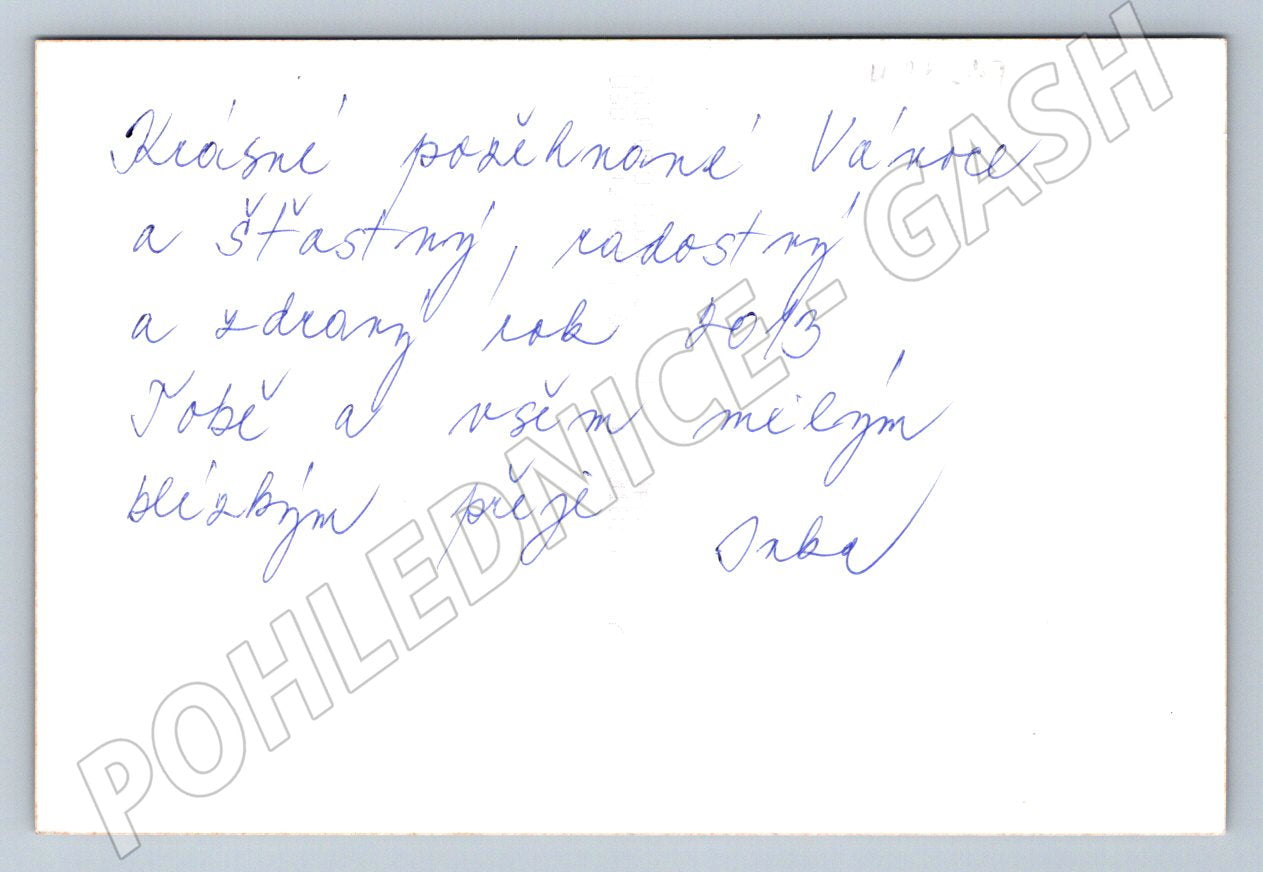 Krásné požehnané Vánoce
a šťastný, radostný
a zdravý rok 2013
Tobě a všem milým
blízkým přeje
POHLEDNICE - GASH